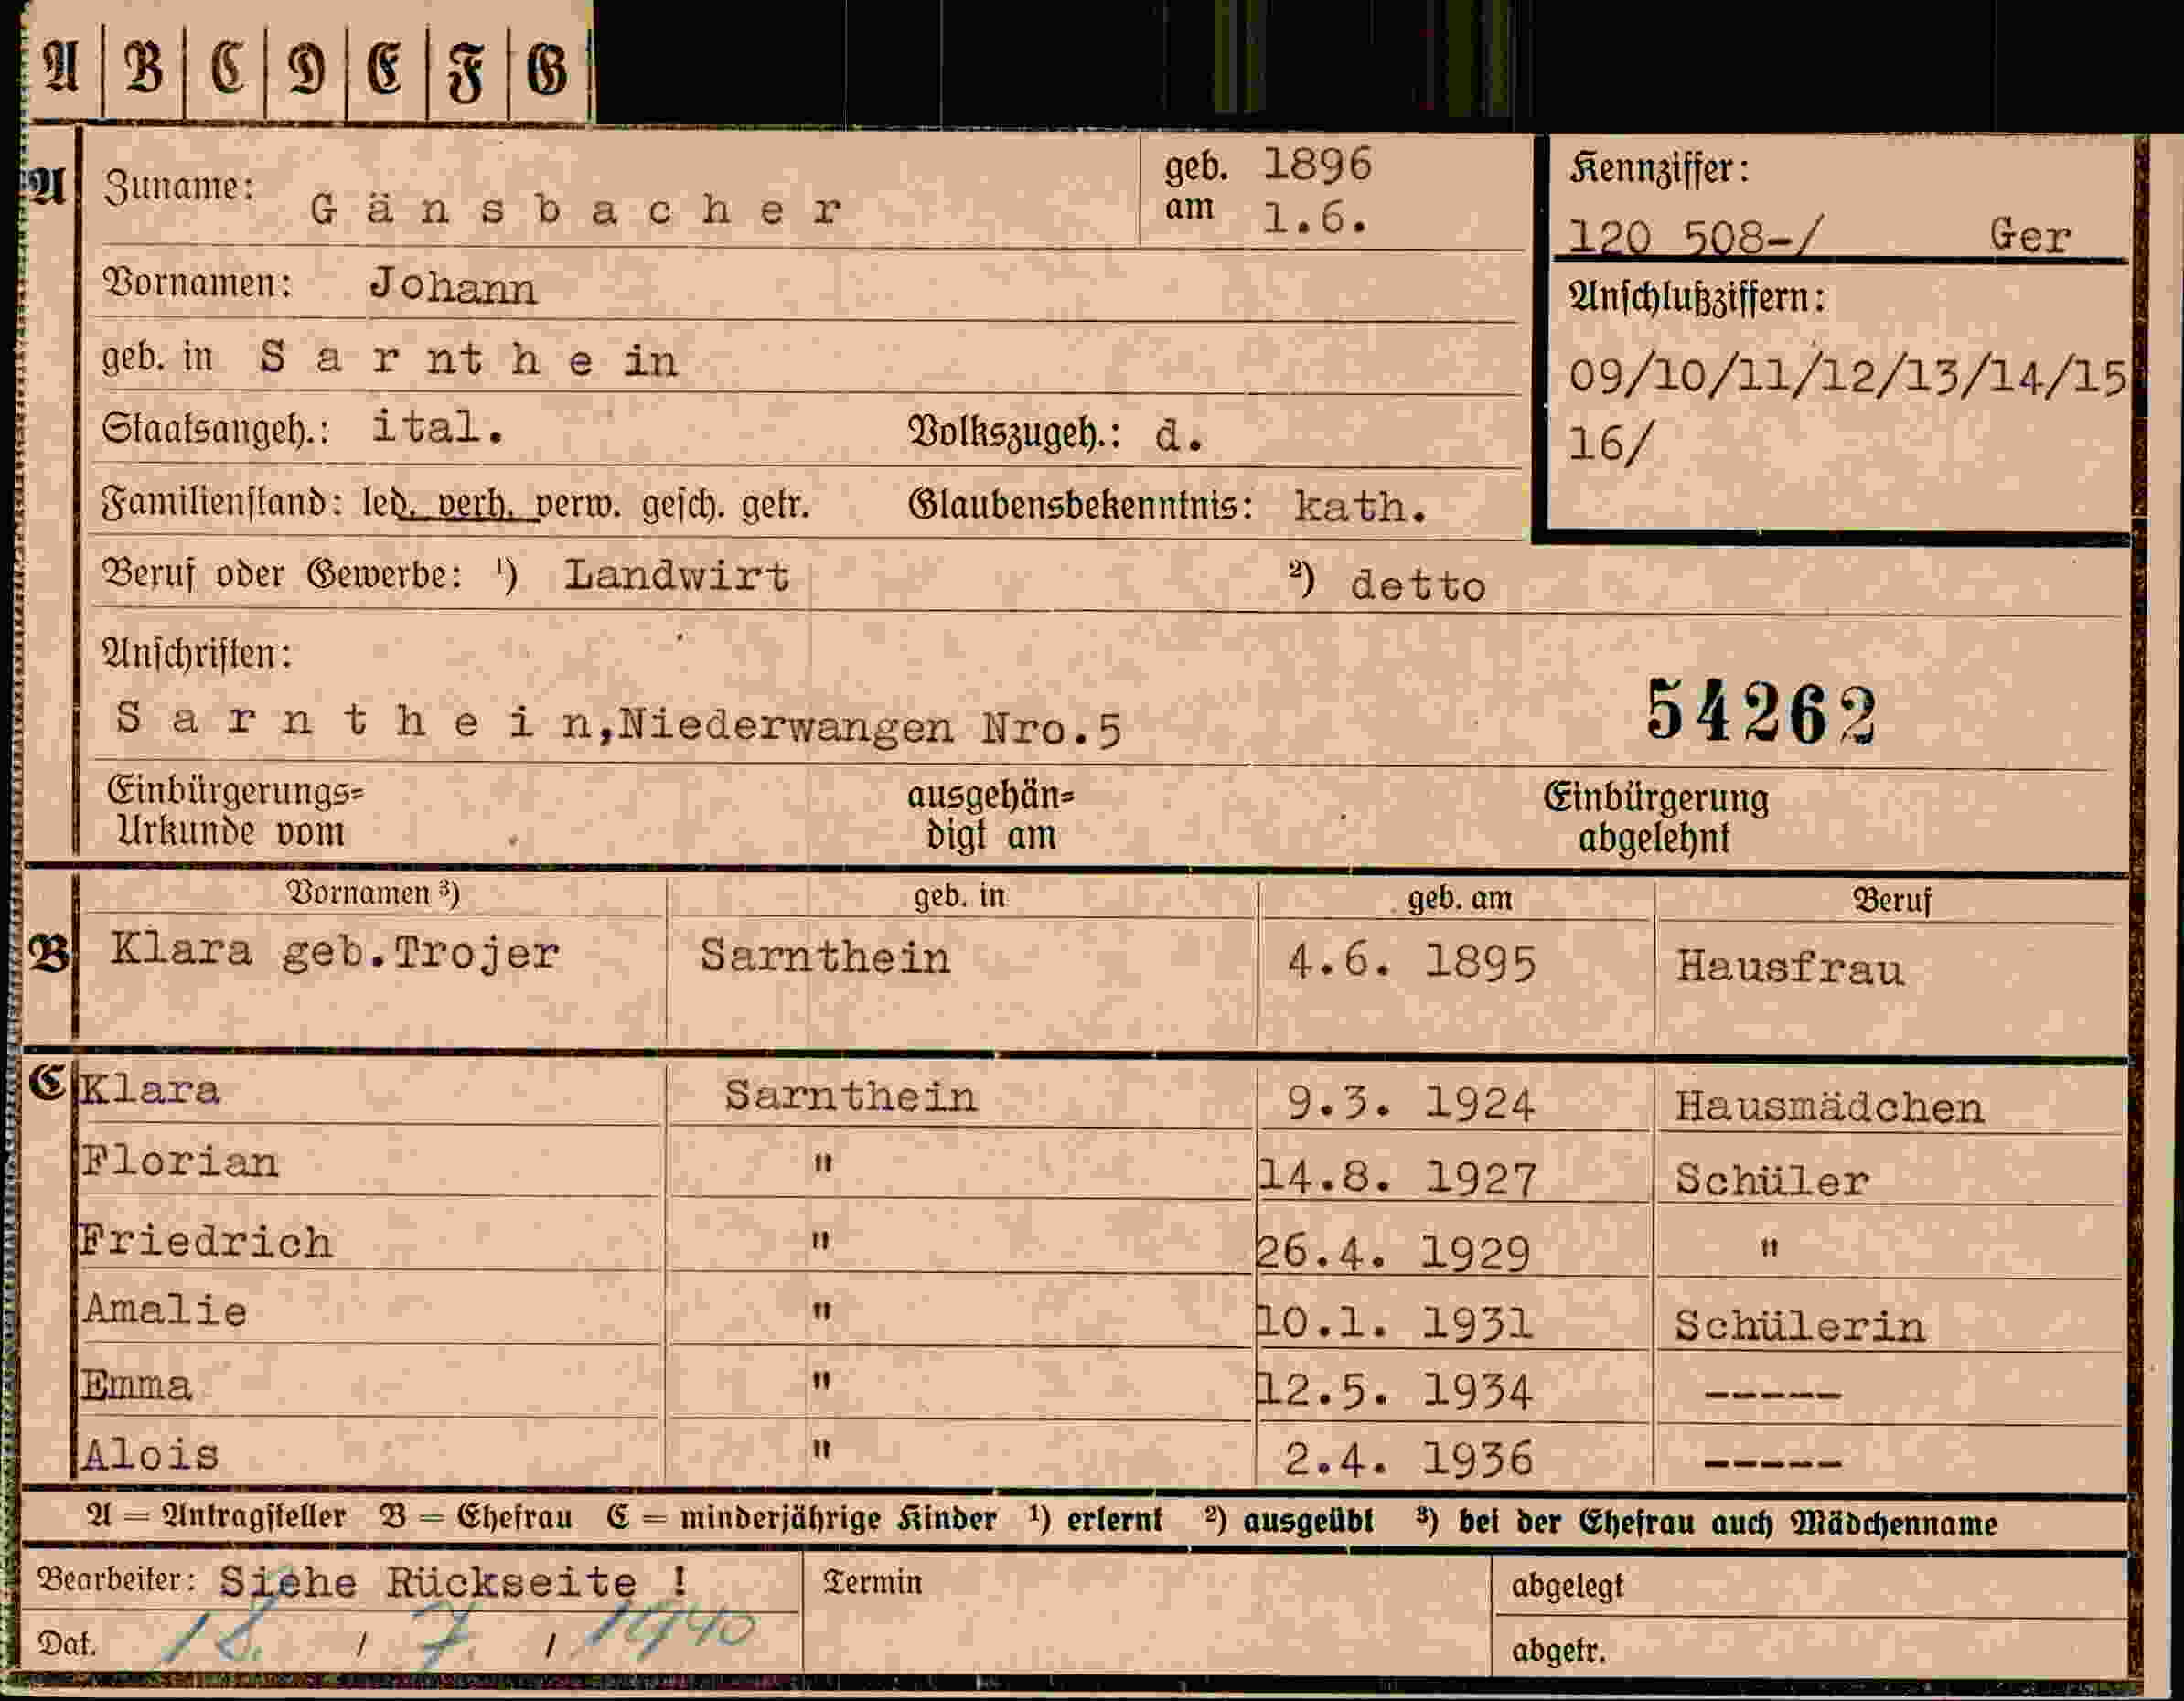 A B C D E F G
A Zuname: Gänsbacher geb. am 1896 1.6.
Kennziffer:
120 508-/ Ger
Vornamen: Johann
Anschlußziffern:
09/10/11/12/13/14/15
16/
geb. in Sarnthein
Staatsangeh.: ital. Volkszugeh.: d.
Familienstand: led. verh. verw. gesch. getr. Glaubensbekenntnis: kath.
Beruf oder Gewerbe: ¹) Landwirt ²) detto
Anschriften:
Sarnthein,Niederwangen Nro.5
54262
Einbürgerungs= Urkunde vom ausgehän= digt am Einbürgerung abgelehnt
Vornamen ³) geb. in geb. am Beruf
B Klara geb.Trojer Sarnthein 4.6. 1895 Hausfrau
C Klara Sarnthein 9.3. 1924 Hausmädchen
Florian " 14.8. 1927 Schüler
Friedrich " 26.4. 1929 "
Amalie " 10.1. 1931 Schülerin
Emma " 12.5. 1934 -----
Alois " 2.4. 1936 -----
A = Antragsteller B = Ehefrau C = minderjährige Kinder ¹) erlernt ²) ausgeübt ³) bei der Ehefrau auch Mädchenname
Bearbeiter: Siehe Rückseite ! Termin abgelegt
Dat. 18. / 7. / 1940 abgetr.